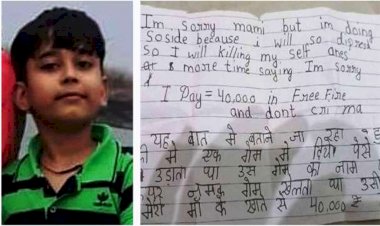 Im sorry mami but im doing
soside because i will so dipresd
so I will killing my self ones
at s more time saying Im sorry
I Pay = 40,000 in Free Fire
and dont cri ma
यह बात मे बताने जा रहा
की मे एक गेम मे दिया पैसे
उडाता था उस गेम का नाम
खेलता था उसी
मेरी माँ के खाते से 40,000 ₹